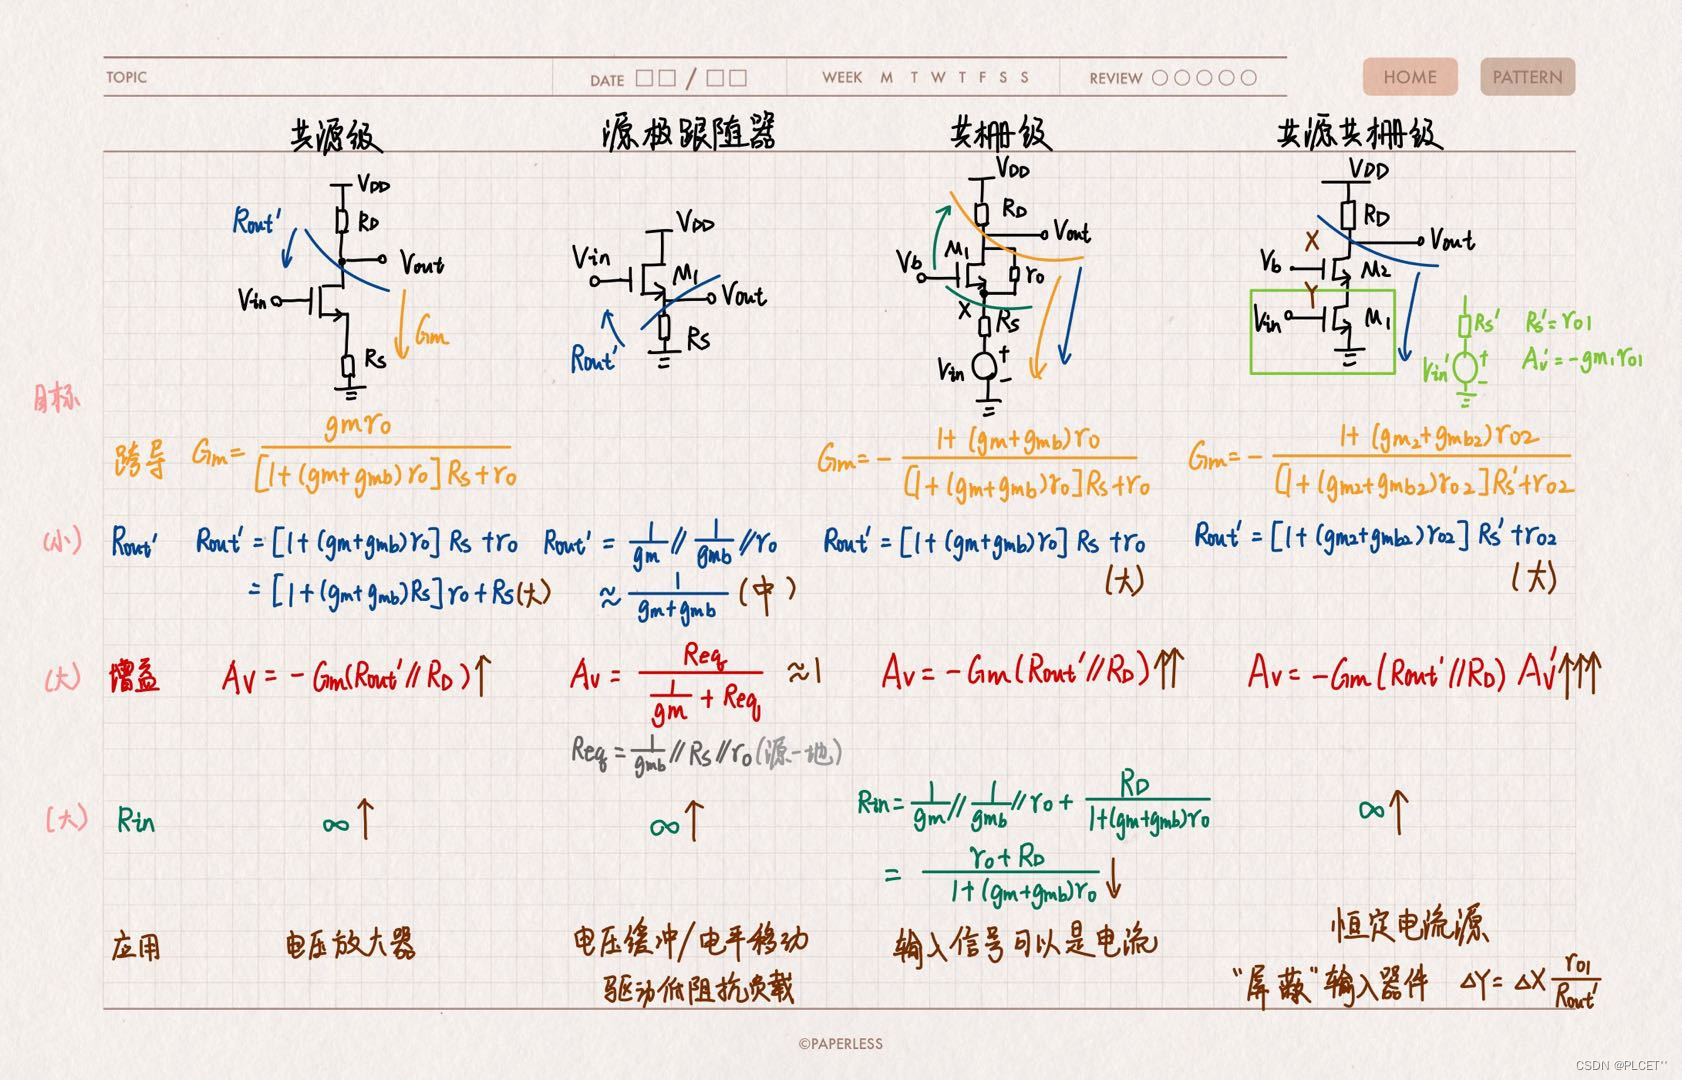 TOPIC DATE □□/□□ WEEK M T W T F S S REVIEW ○○○○○ HOME PATTERN
共源级 源极跟随器 共栅级 共源共栅级
VDD RD Rout' Vout Vin Gm Rs
VDD Vin M1 Vout Rs Rout'
VDD RD Vout M1 Vb ro X Rs Vin + -
VDD RD X Vout Vb M2 Y Vin M1
Rs' Rs'=ro1
Vin' + - Av'=-gm1ro1
目标
跨导 Gm= gmro / [1+(gm+gmb)ro]Rs+ro
Gm=- 1+(gm+gmb)ro / [1+(gm+gmb)ro]Rs+ro
Gm=- 1+(gm2+gmb2)ro2 / [1+(gm2+gmb2)ro2]Rs'+ro2
(小) Rout' Rout'=[1+(gm+gmb)ro]Rs+ro
=[1+(gm+gmb)Rs]ro+Rs(大)
Rout'= 1/gm // 1/gmb // ro
≈ 1/gm+gmb (中)
Rout'=[1+(gm+gmb)ro]Rs+ro
(大)
Rout'=[1+(gm2+gmb2)ro2]Rs'+ro2
(大)
(大) 增益 Av=-Gm(Rout'//RD)↑
Av= Req / 1/gm + Req ≈1
Req= 1/gmb // Rs // ro(源-地)
Av=-Gm(Rout'//RD)↑↑
Av=-Gm(Rout'//RD)Av'↑↑↑
(大) Rin ∞↑ ∞↑
Rin= 1/gm // 1/gmb // ro + RD / 1+(gm+gmb)ro
= ro+RD / 1+(gm+gmb)ro ↓
∞↑
应用 电压放大器
电压缓冲/电平移动
驱动低阻抗负载
输入信号可以是电流
恒定电流源
“屏蔽”输入器件 ΔY=ΔX ro1/Rout'
©PAPERLESS
CSDN @PLCET''